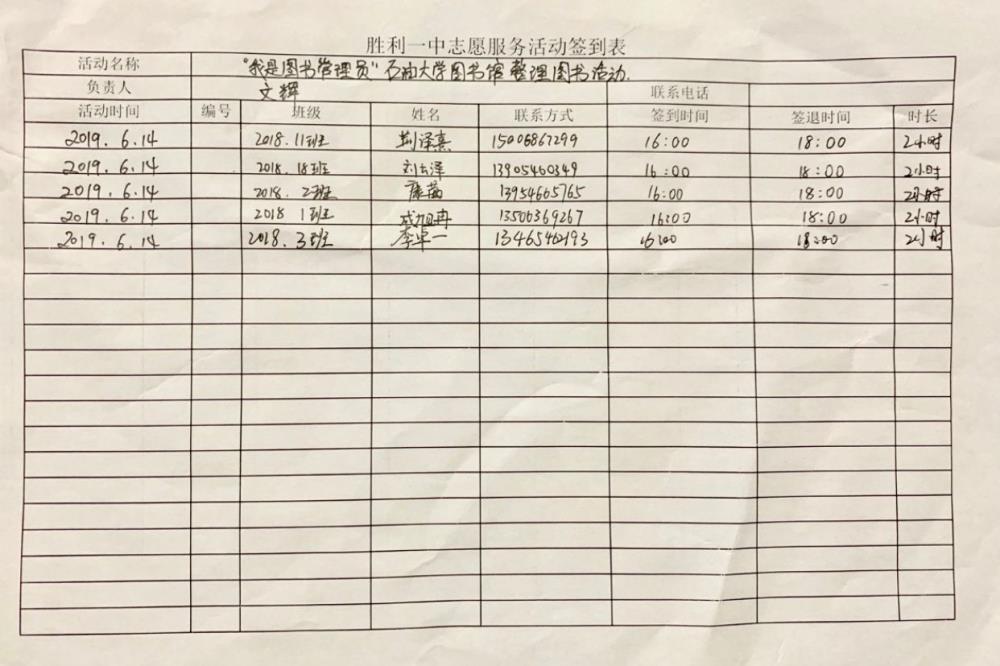 胜利一中志愿服务活动签到表
活动名称 "我是图书管理员"石油大学图书馆整理图书活动.
负责人 文辉 联系电话
活动时间 编号 班级 姓名 联系方式 签到时间 签退时间 时长
2019.6.14 2018.11班 泽熹 15006867299 16:00 18:00 2小时
2019.6.14 2018.18班 刘云泽 13905460349 16:00 18:00 2小时
2019.6.14 2018.2班 康茜 13954665765 16:00 18:00 2小时
2019.6.14 2018 1班 成旭冉 13506369267 16:00 18:00 2小时
2019.6.14 2018.3班 李卓一 13465462193 16:00 18:00 2小时